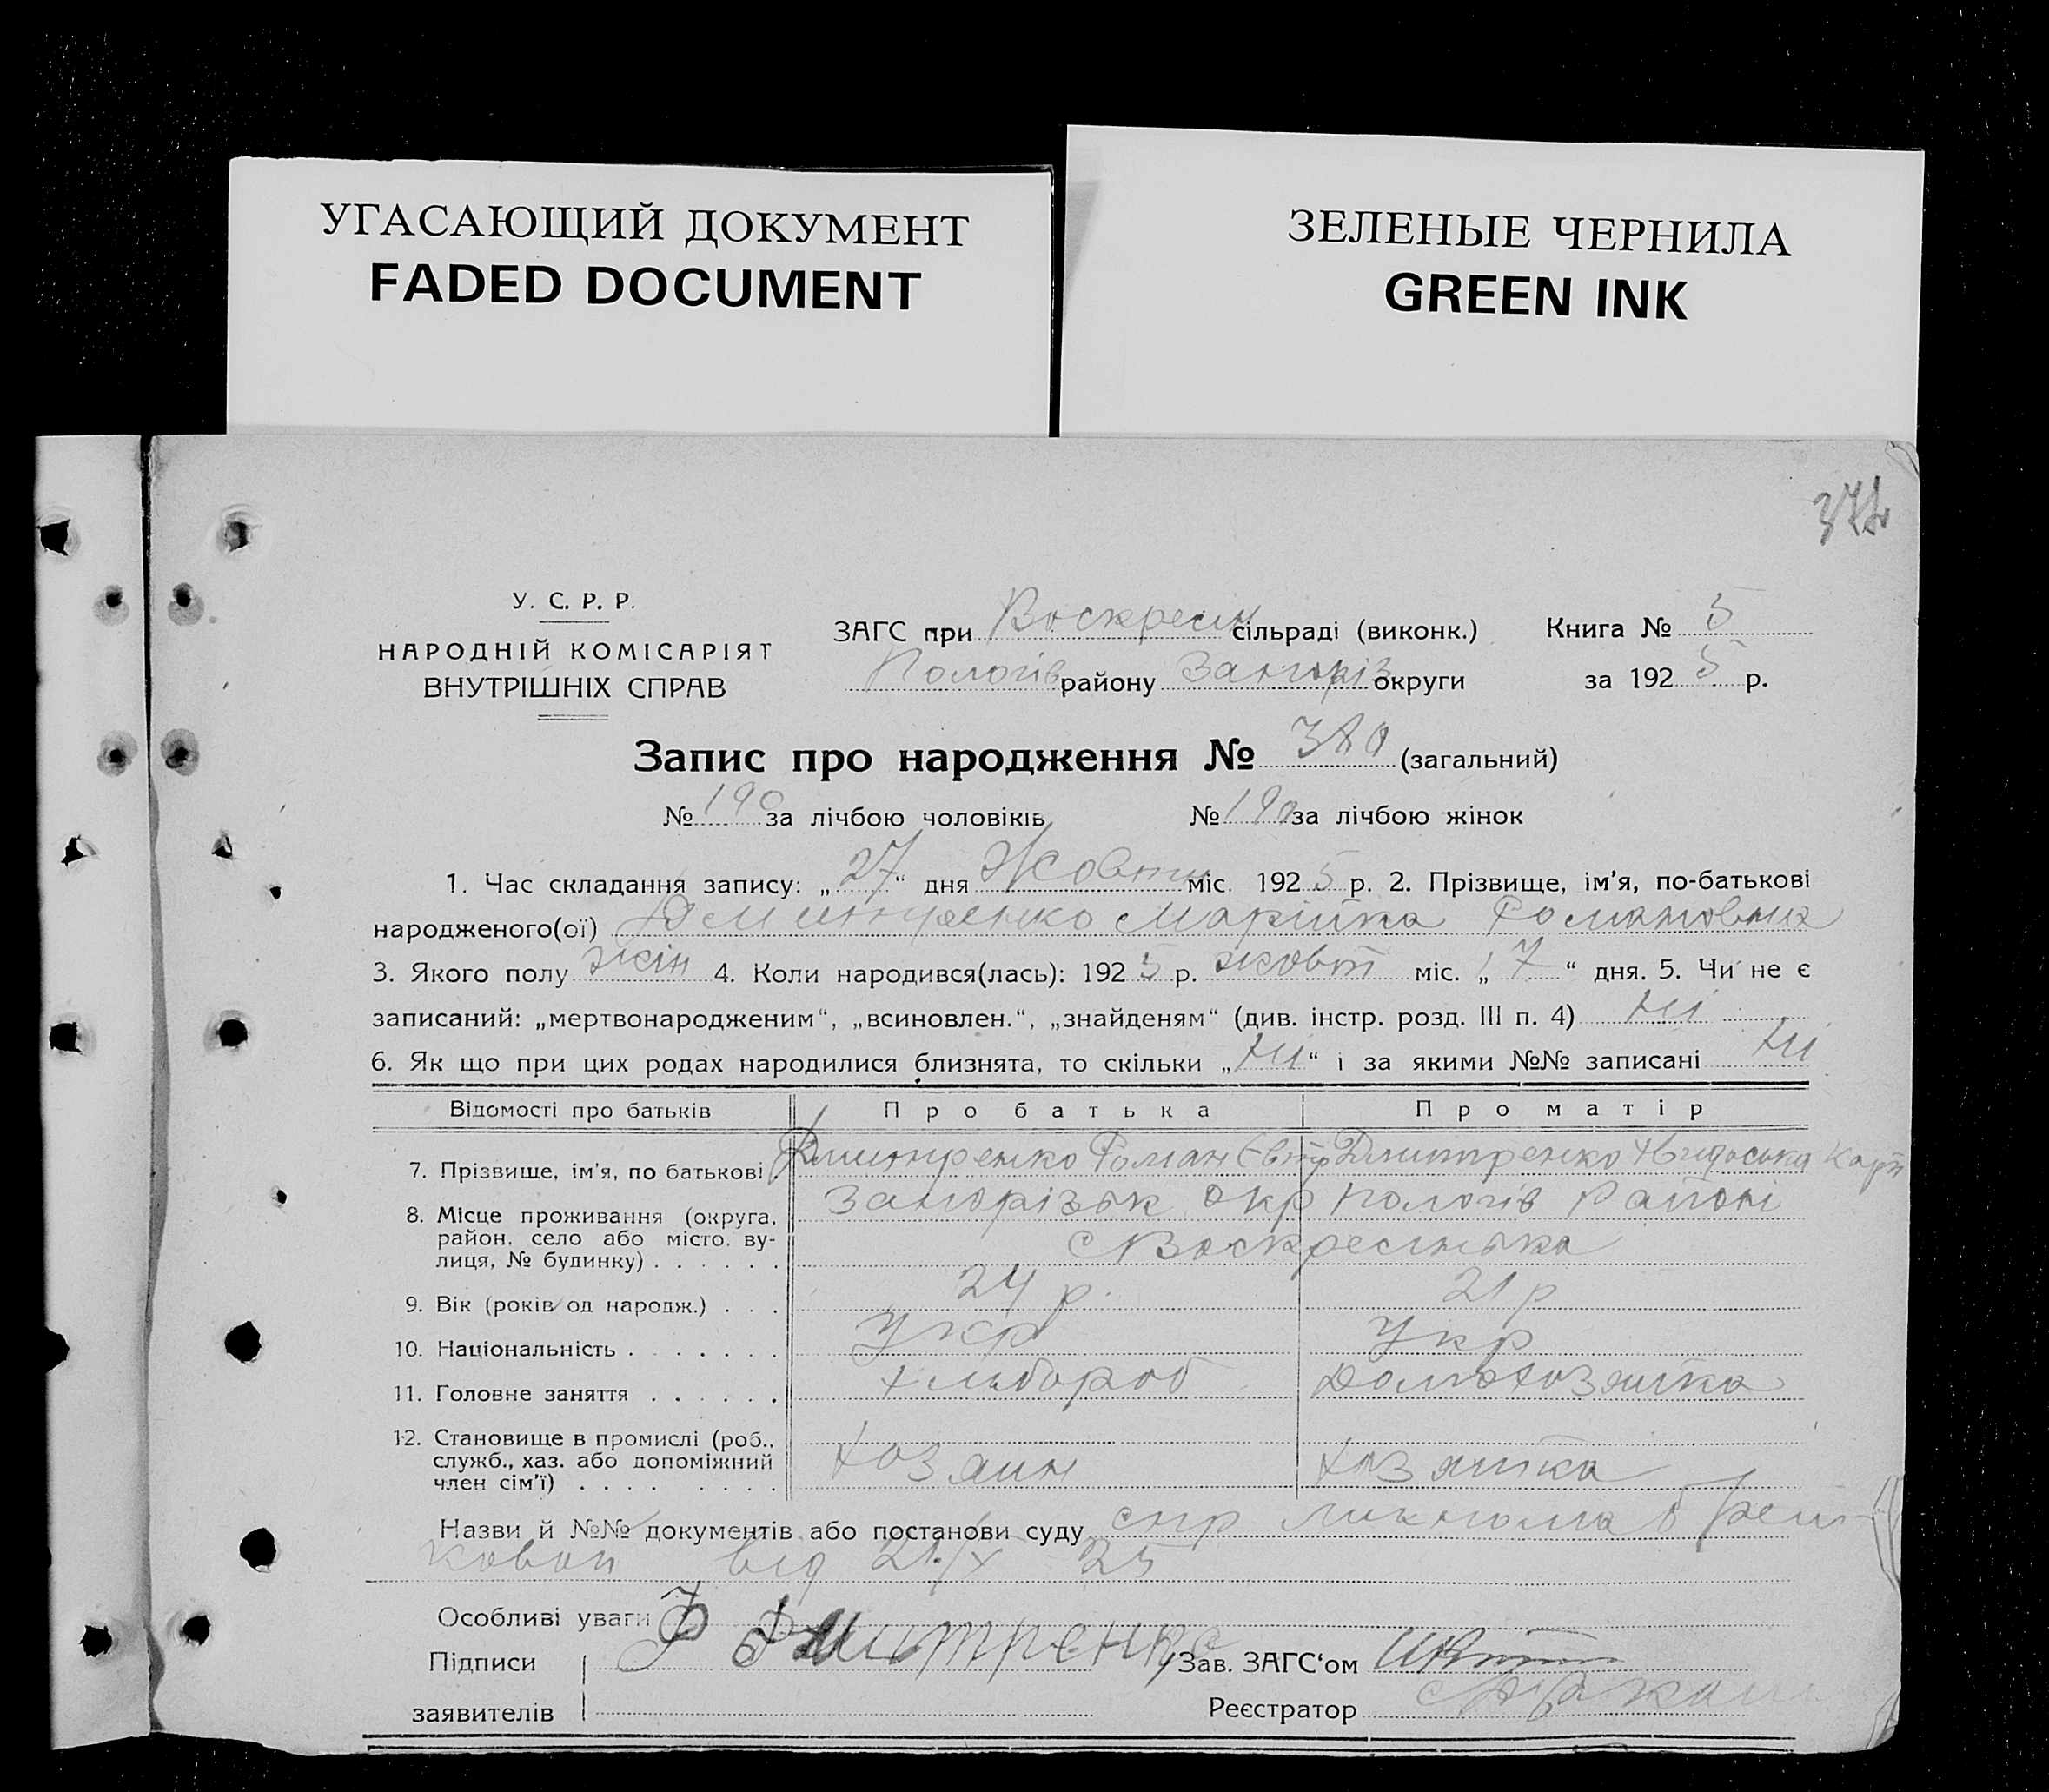 УГАСАЮЩИЙ ДОКУМЕНТ
FADED DOCUMENT
ЗЕЛЕНЫЕ ЧЕРНИЛА
GREEN INK
У. С. Р. Р.
НАРОДНІЙ КОМІСАРІЯТ
ВНУТРІШНІХ СПРАВ
ЗАГС при Воскресін сільраді (виконк.) Книга № 5
Пологів району Запоріз округи за 192 5 р.
Запис про народження № 380 (загальний)
№ 190 за лічбою чоловіків № 190 за лічбою жінок
1. Час складання запису: „27“ дня Жовтн міс. 192 5 р. 2. Прізвище, ім'я, по-батькові
народженого(ої) Дмитренко Марійка Романовна
3. Якого полу жін 4. Коли народився(лась): 192 5 р. жовт міс. „ 7 “ дня. 5. Чи не є
записаний: „мертвонародженим“, „всиновлен.“, „знайденям“ (див. інстр. розд. III п. 4) ні
6. Як що при цих родах народилися близнята, то скільки „ні“ і за якими №№ записані ні
Відомості про батьків Про батька Про матір
7. Прізвище, ім'я, по батькові Дмитренко Роман Дмитренко
8. Місце проживання (округа, Запорізьк окр Пологів Районі
район, село або місто, ву- с Воскресінька
лиця, № будинку) . . . . . .
9. Вік (років од народж.) . . . 24 р. 21 р
10. Національність . . . . . . . Укр Укр
11. Головне заняття . . . . . . Хлібороб Домохозяйка
12. Становище в промислі (роб.,
служб., хаз. або допоміжний Хозяин Хозяйка
член сім'ї) . . . . . . . .
Назви й №№ документів або постанови суду спр
від 21/X 25
Особливі уваги
Підписи Р Дмитренко Зав. ЗАГС'ом
заявителів Реєстратор